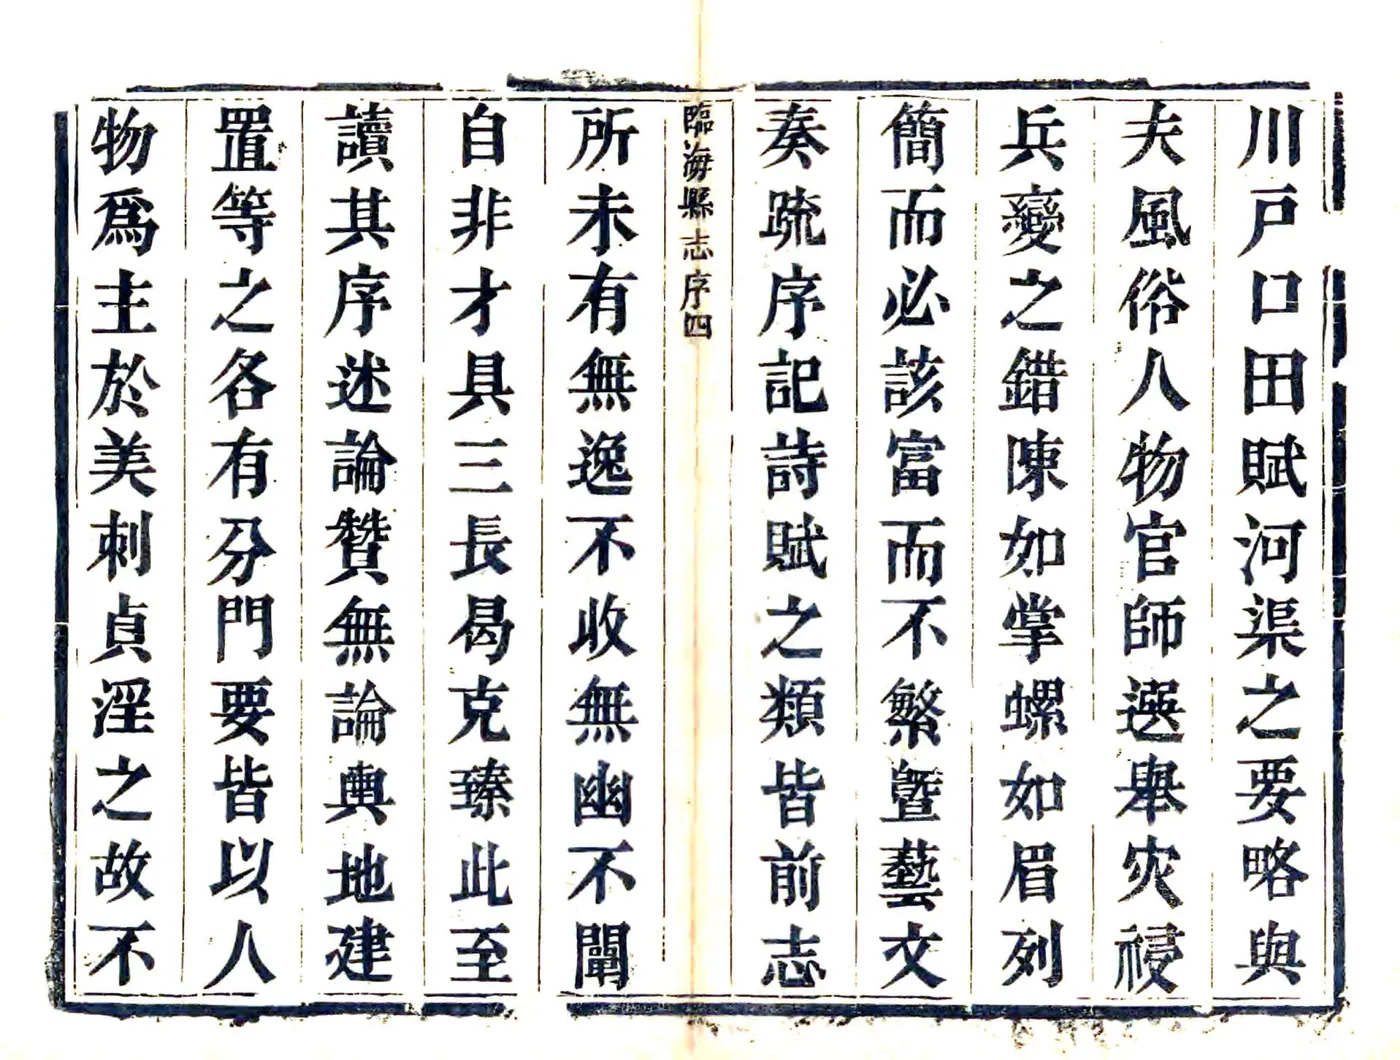 川戸口田賦河渠之要略與
夫風俗人物官師選舉灾祲
兵變之錯陳如掌螺如眉列
簡而必該富而不繁曁藝文
奏疏序記詩賦之類皆前志
臨海縣志序四
所未有無逸不收無幽不闡
自非才具三長曷克臻此至
讀其序述論贊無論輿地建
置等之各有分門要皆以人
物爲主於美刺貞淫之故不